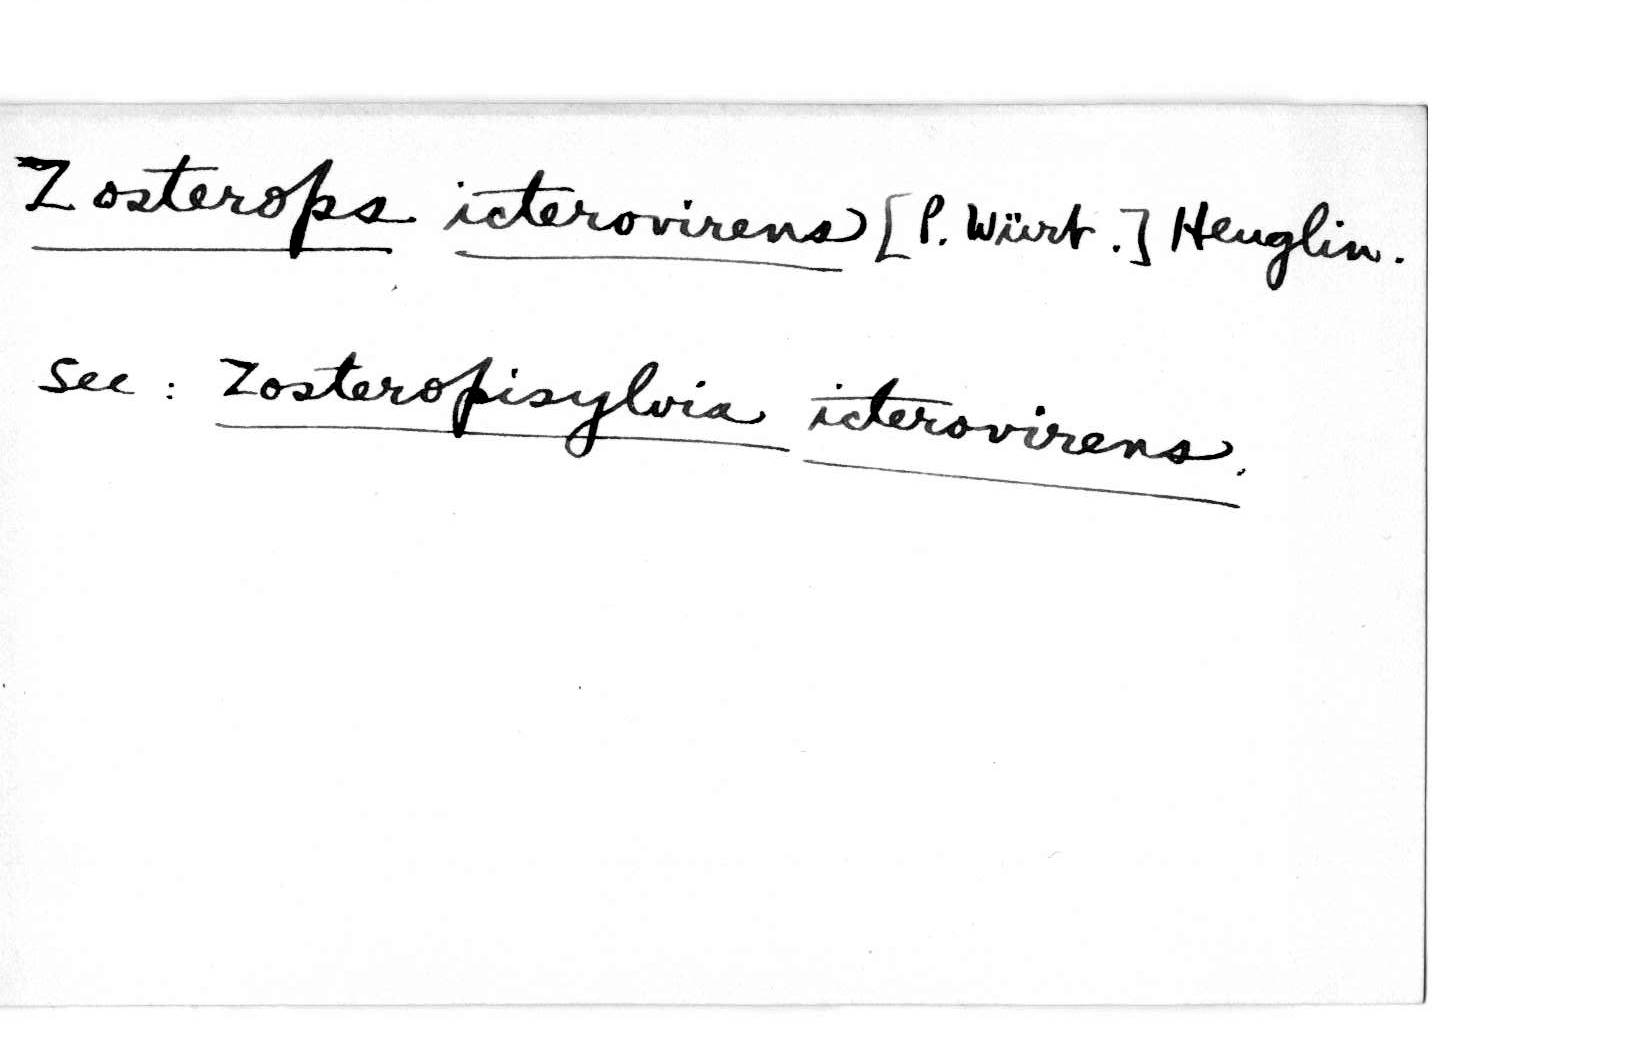 Zosterops icterovirens [P. Würt.] Heuglin.
See: Zosteropisylvia icterovirens.